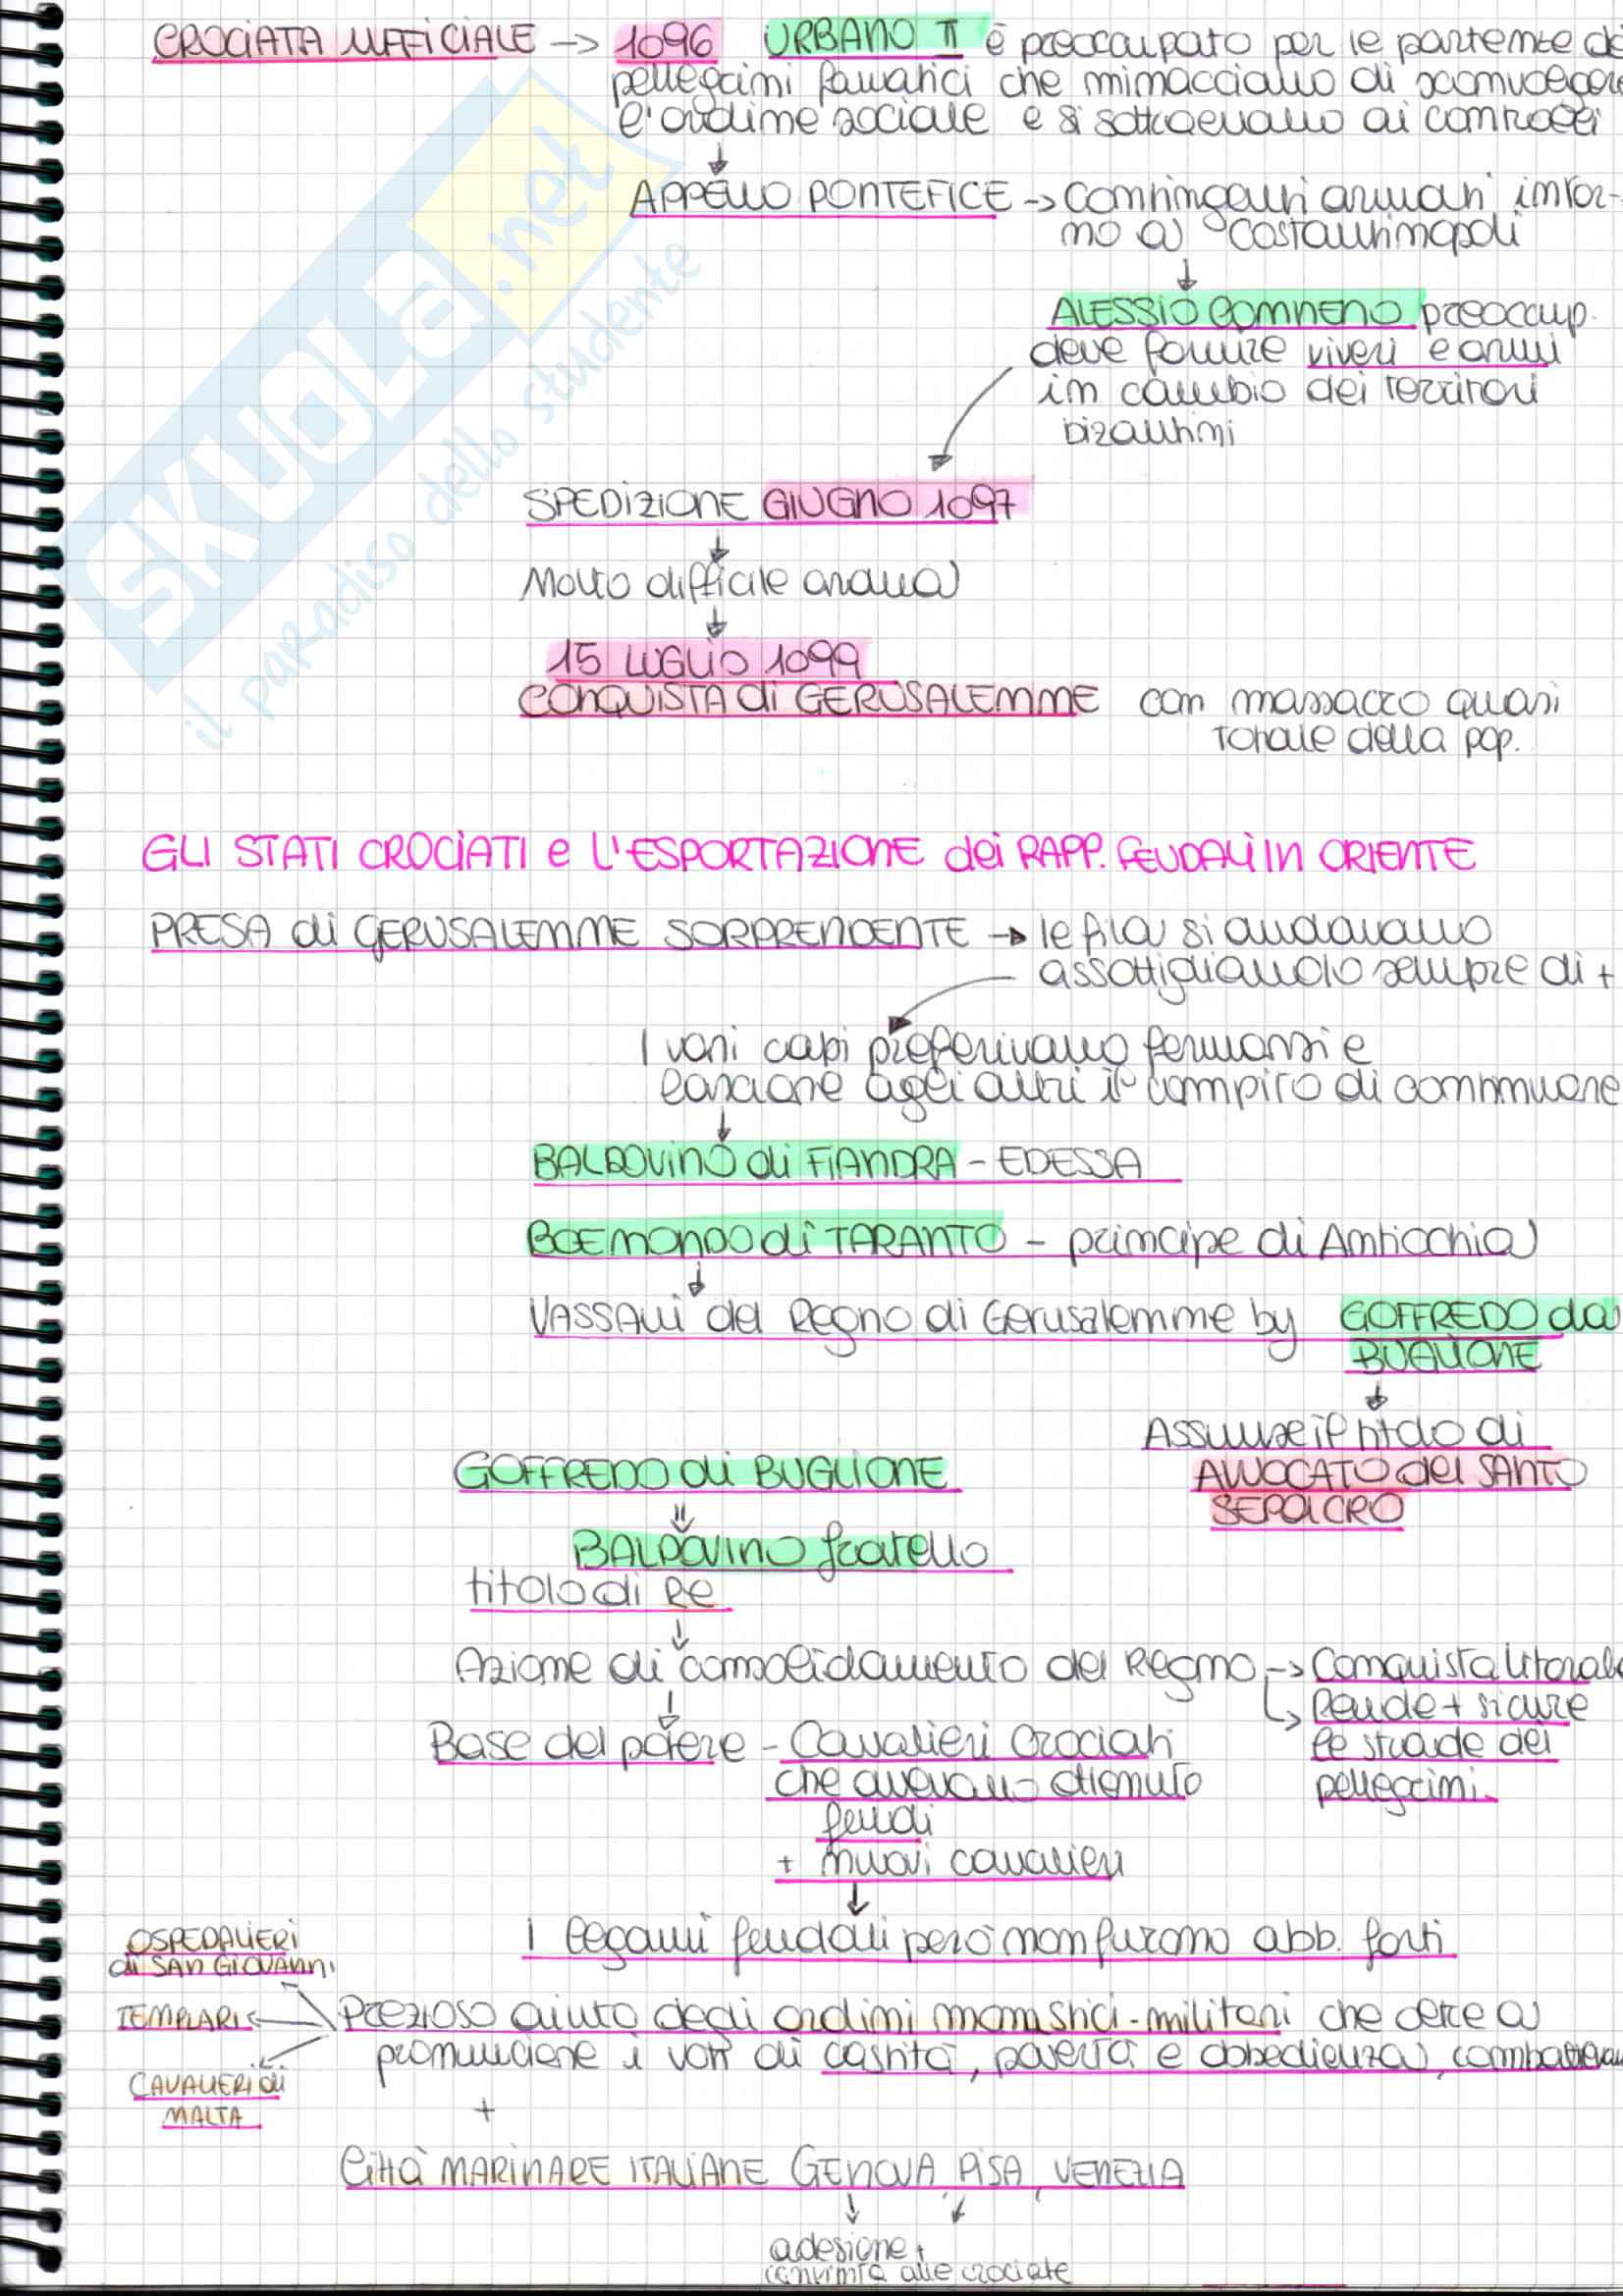 CROCIATA UFFICIALE → 1096 URBANO II è preoccupato per le partenze de
pellegrini fanatici che minacciano di sconvolgere
l'ordine sociale e si sottraevano ai controlli
↓
APPELLO PONTEFICE → Contingenti armati intor-
no a Costantinopoli
↓
ALESSIO COMNENO preoccup.
deve fornire viveri e armi
in cambio dei territori
bizantini
SPEDIZIONE GIUGNO 1097
↓
Molto difficile ardua
↓
15 LUGLIO 1099
CONQUISTA di GERUSALEMME con massacro quasi
totale della pop.
SKUOLA.net
il paradiso dello studente
GLI STATI CROCIATI e L'ESPORTAZIONE dei RAPP. FEUDALI IN ORIENTE
PRESA di GERUSALEMME SORPRENDENTE → le fila si andavano
assottigliando sempre di +
I vari capi preferivano fermarsi e
lasciare agli altri il compito di continuare
↓
BALDOVINO di FIANDRA - EDESSA
BOEMONDO di TARANTO - principe di Antiochia
↓
VASSALLI del Regno di Gerusalemme by GOFFREDO da
BUGLIONE
↓
Assunse il titolo di
AVVOCATO del SANTO
SEPOLCRO
GOFFREDO di BUGLIONE
⇓
BALDOVINO fratello
titolo di Re
↓
Azione di consolidamento del Regno → Conquista litorale
↳ Rende + sicure
le strade dei
pellegrini.
↓
Base del potere - Cavalieri Crociati
che avevano ottenuto
feudi
+ nuovi cavalieri
↓
I legami feudali però non furono abb. forti
OSPEDALIERI
di SAN GIOVANNI
TEMPLARI
CAVALIERI di
MALTA
Prezioso aiuto degli ordini monastici-militari che oltre a
pronunciare i voti di castità, povertà e obbedienza, combattevan
+
Città MARINARE ITALIANE GENOVA, PISA, VENEZIA
↓ ↓
adesione
convinta alle crociate